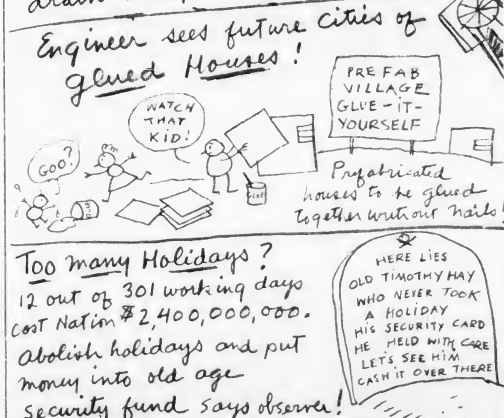 Engineer sees future Cities of
glued Houses!
WATCH
THAT
KID!
GOO?
GLUE
PRE FAB
VILLAGE
GLUE-IT-
YOURSELF
Prefabricated
houses to be glued
together without nails!
Too many Holidays?
12 out of 301 working days
cost Nation $2,400,000,000.
abolish holidays and put
money into old age
security fund says observer!
HERE LIES
OLD TIMOTHY HAY
WHO NEVER TOOK
A HOLIDAY
HIS SECURITY CARD
HE HELD WITH CARE
LET'S SEE HIM
CASH IT OVER THERE